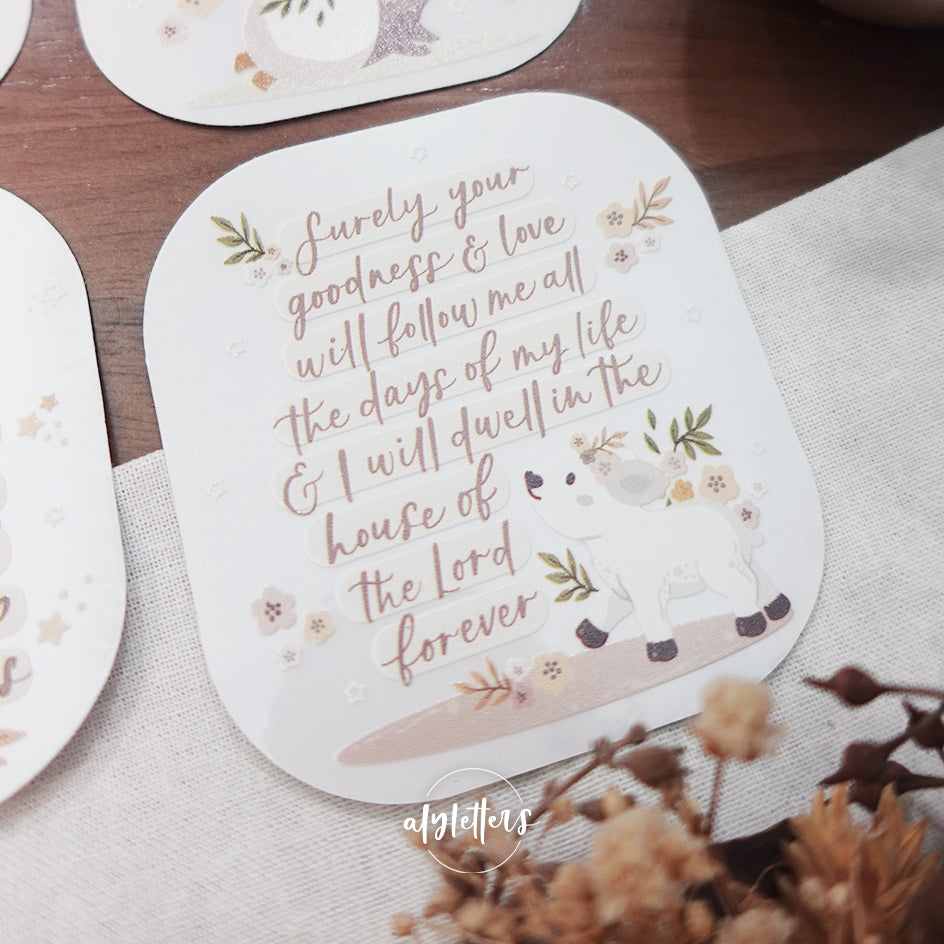 Surely your
goodness & love
will follow me all
the days of my life
& I will dwell in the
house of
the Lord
forever
alyletters